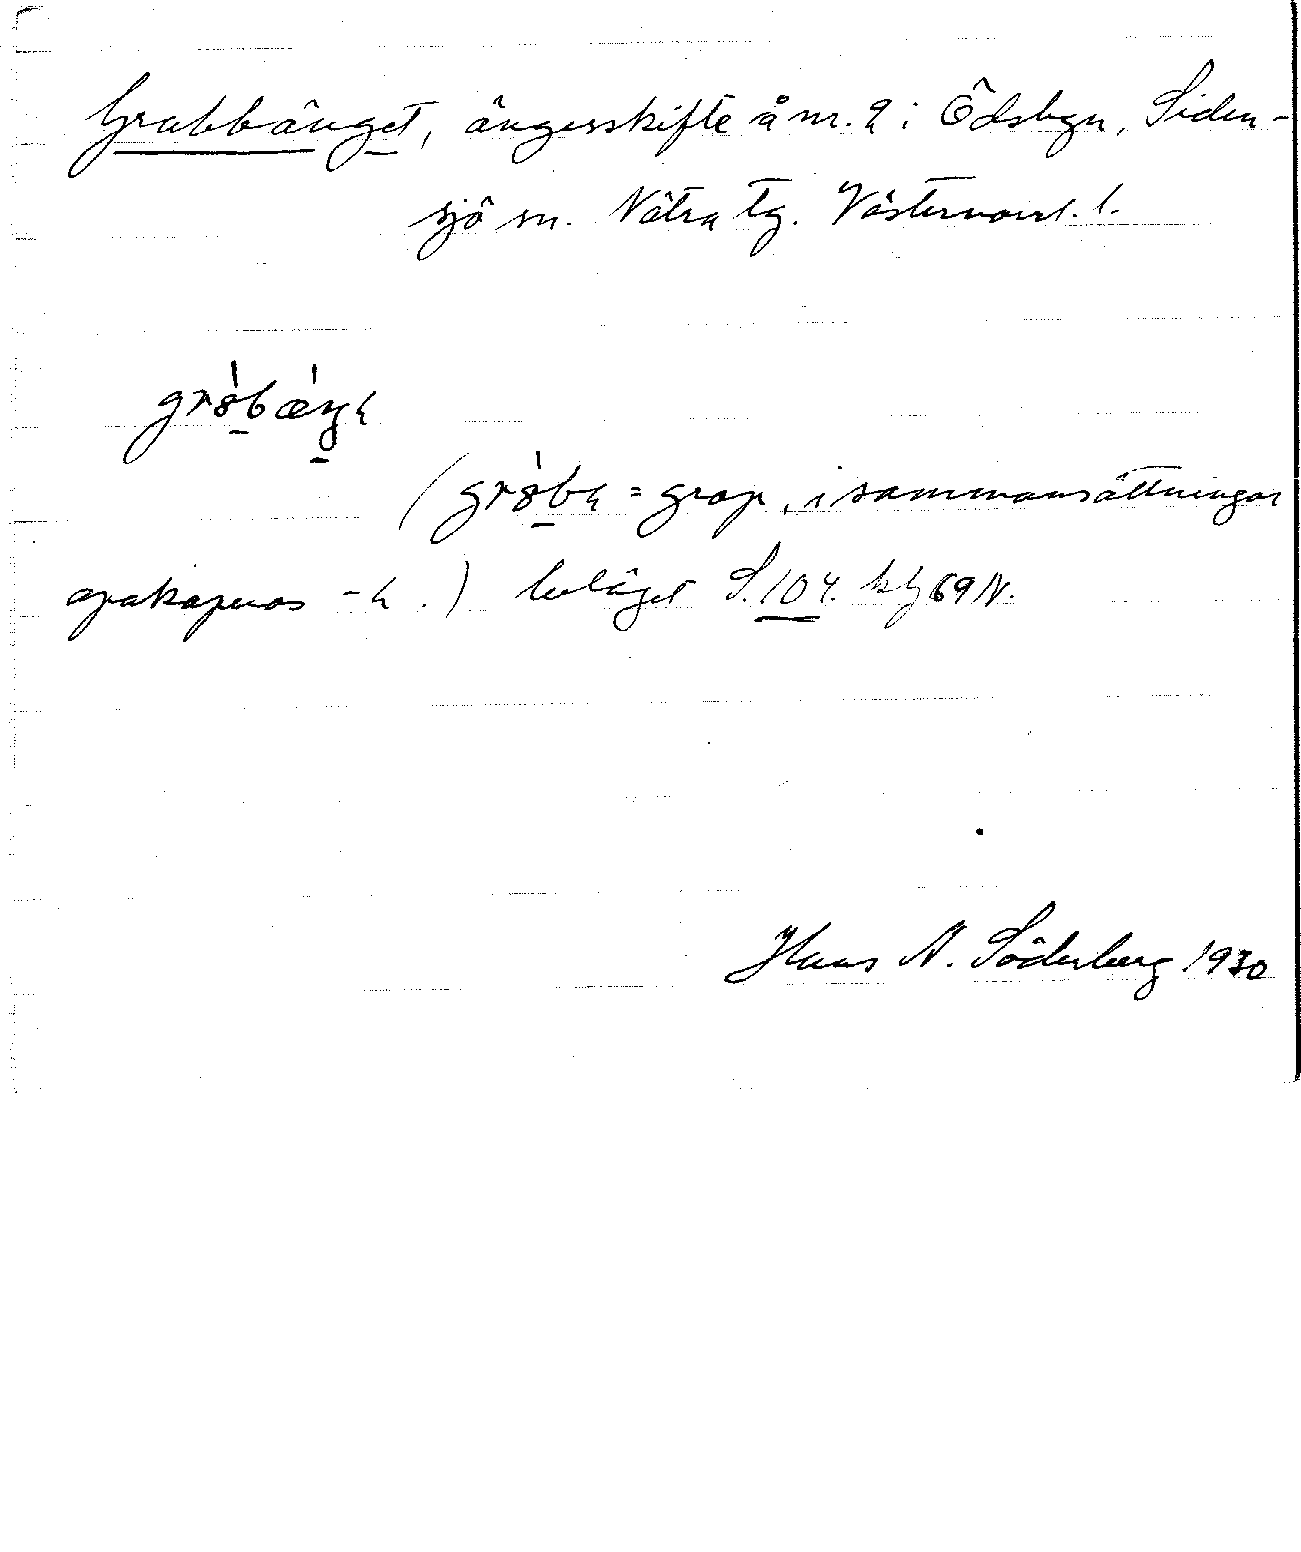 Grubbänget, ängesskifte å nr. 2 i Ödsbyn, Siden-
sjö sn. Nätra tg. Västernorrl. l.
(= grop, i sammansättningar
apokoperas -.) beläget S.104. 69N.
Hans A. Söderberg 1930